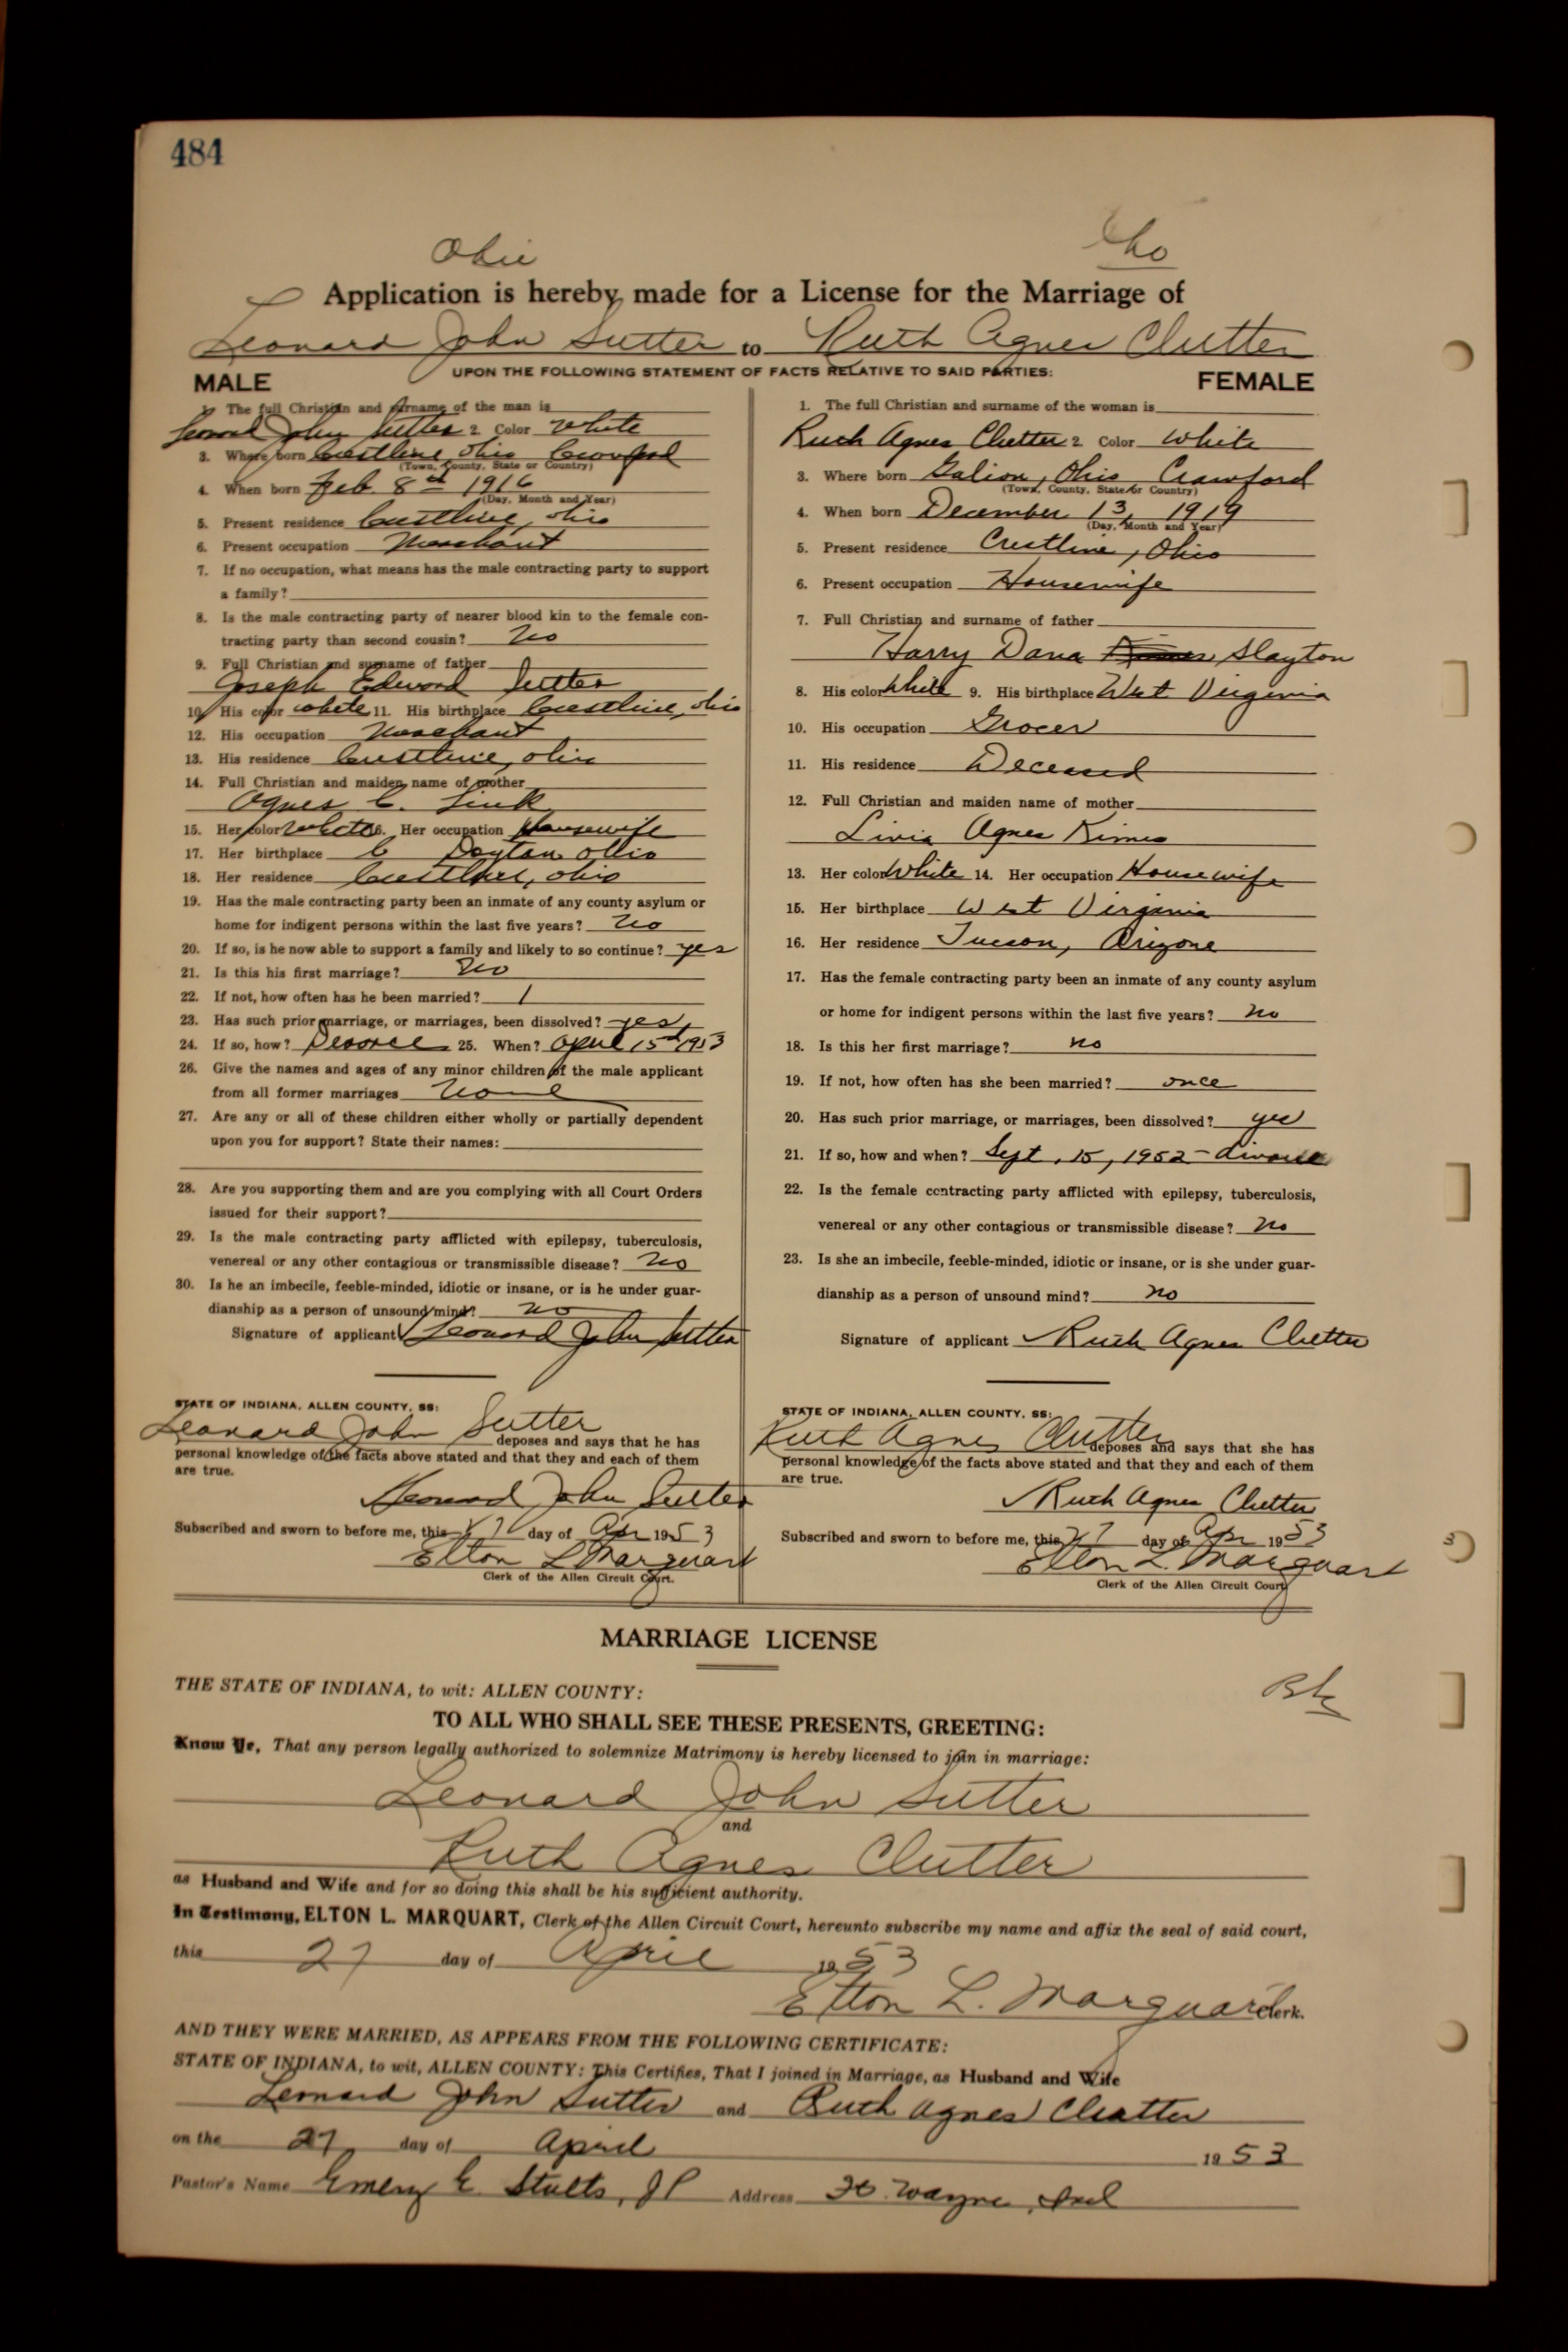 484
Ohio
Application is hereby made for a License for the Marriage of
Leonard John Sutter to Ruth Agnes Clutter
UPON THE FOLLOWING STATEMENT OF FACTS RELATIVE TO SAID PARTIES:
MALE
1. The full Christian and surname of the man is
Leonard John Sutter 2. Color White
3. Where born Crestline, Ohio Crawford
(Town, County, State or Country)
4. When born Feb. 8th 1916
(Day, Month and Year)
5. Present residence Crestline, Ohio
6. Present occupation Merchant
7. If no occupation, what means has the male contracting party to support
a family?
8. Is the male contracting party of nearer blood kin to the female con-
tracting party than second cousin? No
9. Full Christian and surname of father
Joseph Edward Sutter
10. His color white 11. His birthplace Crestline, Ohio
12. His occupation Merchant
13. His residence Crestline, Ohio
14. Full Christian and maiden name of mother
Agnes C. Link
15. Her color white 16. Her occupation Housewife
17. Her birthplace Dayton Ohio
18. Her residence Crestline, Ohio
19. Has the male contracting party been an inmate of any county asylum or
home for indigent persons within the last five years? No
20. If so, is he now able to support a family and likely to so continue? yes
21. Is this his first marriage? No
22. If not, how often has he been married? 1
23. Has such prior marriage, or marriages, been dissolved? yes
24. If so, how? Divorce 25. When? April 15th 1953
26. Give the names and ages of any minor children of the male applicant
from all former marriages None
27. Are any or all of these children either wholly or partially dependent
upon you for support? State their names:
28. Are you supporting them and are you complying with all Court Orders
issued for their support?
29. Is the male contracting party afflicted with epilepsy, tuberculosis,
venereal or any other contagious or transmissible disease? No
30. Is he an imbecile, feeble-minded, idiotic or insane, or is he under guar-
dianship as a person of unsound mind? No
Signature of applicant Leonard John Sutter
STATE OF INDIANA, ALLEN COUNTY, SS:
Leonard John Sutter deposes and says that he has
personal knowledge of the facts above stated and that they and each of them
are true.
Leonard John Sutter
Subscribed and sworn to before me, this 27 day of Apr 1953
Elton L Marquart
Clerk of the Allen Circuit Court.
FEMALE
1. The full Christian and surname of the woman is
Ruth Agnes Clutter 2. Color White
3. Where born Galion, Ohio Crawford
(Town, County, State or Country)
4. When born December 13, 1919
(Day, Month and Year)
5. Present residence Crestline, Ohio
6. Present occupation Housewife
7. Full Christian and surname of father
Harry Dana Slayton
8. His color White 9. His birthplace West Virginia
10. His occupation Grocer
11. His residence Deceased
12. Full Christian and maiden name of mother
Livia Agnes Kimes
13. Her color White 14. Her occupation Housewife
15. Her birthplace West Virginia
16. Her residence Tucson, Arizona
17. Has the female contracting party been an inmate of any county asylum
or home for indigent persons within the last five years? No
18. Is this her first marriage? no
19. If not, how often has she been married? once
20. Has such prior marriage, or marriages, been dissolved? yes
21. If so, how and when? Sept. 15, 1952 - divorce
22. Is the female contracting party afflicted with epilepsy, tuberculosis,
venereal or any other contagious or transmissible disease? No
23. Is she an imbecile, feeble-minded, idiotic or insane, or is she under guar-
dianship as a person of unsound mind? no
Signature of applicant Ruth Agnes Clutter
STATE OF INDIANA, ALLEN COUNTY, SS:
Ruth Agnes Clutter deposes and says that she has
personal knowledge of the facts above stated and that they and each of them
are true.
Ruth Agnes Clutter
Subscribed and sworn to before me, this 27 day of Apr 1953
Elton L. Marquart
Clerk of the Allen Circuit Court
MARRIAGE LICENSE
THE STATE OF INDIANA, to wit: ALLEN COUNTY:
TO ALL WHO SHALL SEE THESE PRESENTS, GREETING:
Know Ye, That any person legally authorized to solemnize Matrimony is hereby licensed to join in marriage:
Leonard John Sutter
and
Ruth Agnes Clutter
as Husband and Wife and for so doing this shall be his sufficient authority.
In Testimony, ELTON L. MARQUART, Clerk of the Allen Circuit Court, hereunto subscribe my name and affix the seal of said court,
this 27 day of April 1953
Elton L. Marquart Clerk.
AND THEY WERE MARRIED, AS APPEARS FROM THE FOLLOWING CERTIFICATE:
STATE OF INDIANA, to wit, ALLEN COUNTY: This Certifies, That I joined in Marriage, as Husband and Wife
Leonard John Sutter and Ruth Agnes Clutter
on the 27 day of April 1953
Pastor's Name Emery E. Stults, JP Address Ft. Wayne, Ind